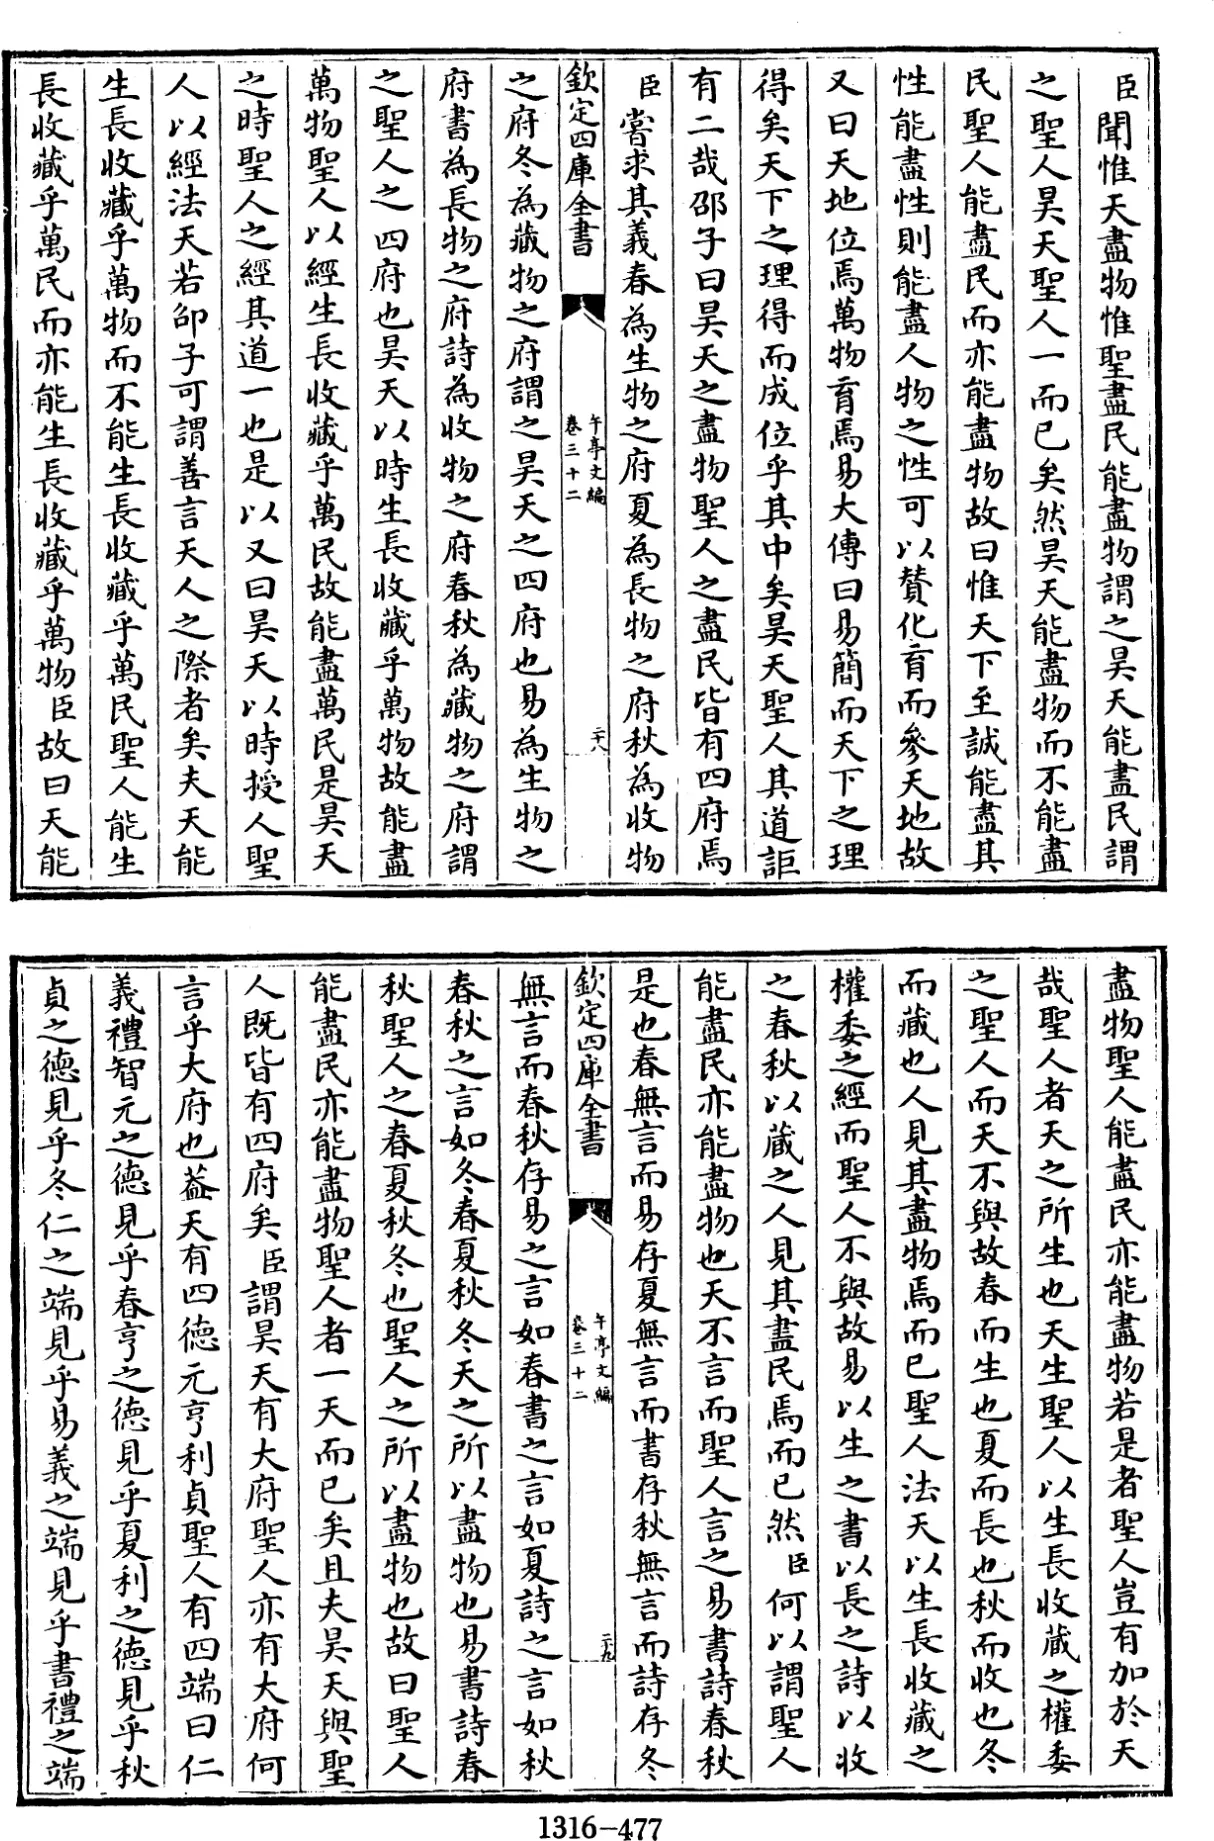 臣聞惟天盡物惟聖盡民能盡物謂之昊天能盡民謂
之聖人昊天聖人一而已矣然昊天能盡物而不能盡
民聖人能盡民而亦能盡物故曰惟天下至誠能盡其
性能盡性則能盡人物之性可以贊化育而參天地故
又曰天地位焉萬物育焉易大傳曰易簡而天下之理
得矣天下之理得而成位乎其中矣昊天聖人其道詎
有二哉邵子曰昊天之盡物聖人之盡民皆有四府焉
臣嘗求其義春為生物之府夏為長物之府秋為收物
欽定四庫全書
午亭文編
卷三十二
二十八
之府冬為藏物之府謂之昊天之四府也易為生物之
府書為長物之府詩為收物之府春秋為藏物之府謂
之聖人之四府也昊天以時生長收藏乎萬物故能盡
萬物聖人以經生長收藏乎萬民故能盡萬民是昊天
之時聖人之經其道一也是以又曰昊天以時授人聖
人以經法天若邵子可謂善言天人之際者矣夫天能
生長收藏乎萬物而不能生長收藏乎萬民聖人能生
長收藏乎萬民而亦能生長收藏乎萬物臣故曰天能
盡物聖人能盡民亦能盡物若是者聖人豈有加於天
哉聖人者天之所生也天生聖人以生長收藏之權委
之聖人而天不與故春而生也夏而長也秋而收也冬
而藏也人見其盡物焉而已聖人法天以生長收藏之
權委之經而聖人不與故易以生之書以長之詩以收
之春秋以藏之人見其盡民焉而已然臣何以謂聖人
能盡民亦能盡物也天不言而聖人言之易書詩春秋
是也春無言而易存夏無言而書存秋無言而詩存冬
欽定四庫全書
午亭文編
卷三十二
二十九
無言而春秋存易之言如春書之言如夏詩之言如秋
春秋之言如冬春夏秋冬天之所以盡物也易書詩春
秋聖人之春夏秋冬也聖人之所以盡物也故曰聖人
能盡民亦能盡物聖人者一天而已矣且夫昊天與聖
人既皆有四府矣臣謂昊天有大府聖人亦有大府何
言乎大府也葢天有四德元亨利貞聖人有四端曰仁
義禮智元之德見乎春亨之德見乎夏利之德見乎秋
貞之德見乎冬仁之端見乎易義之端見乎書禮之端
1316-477